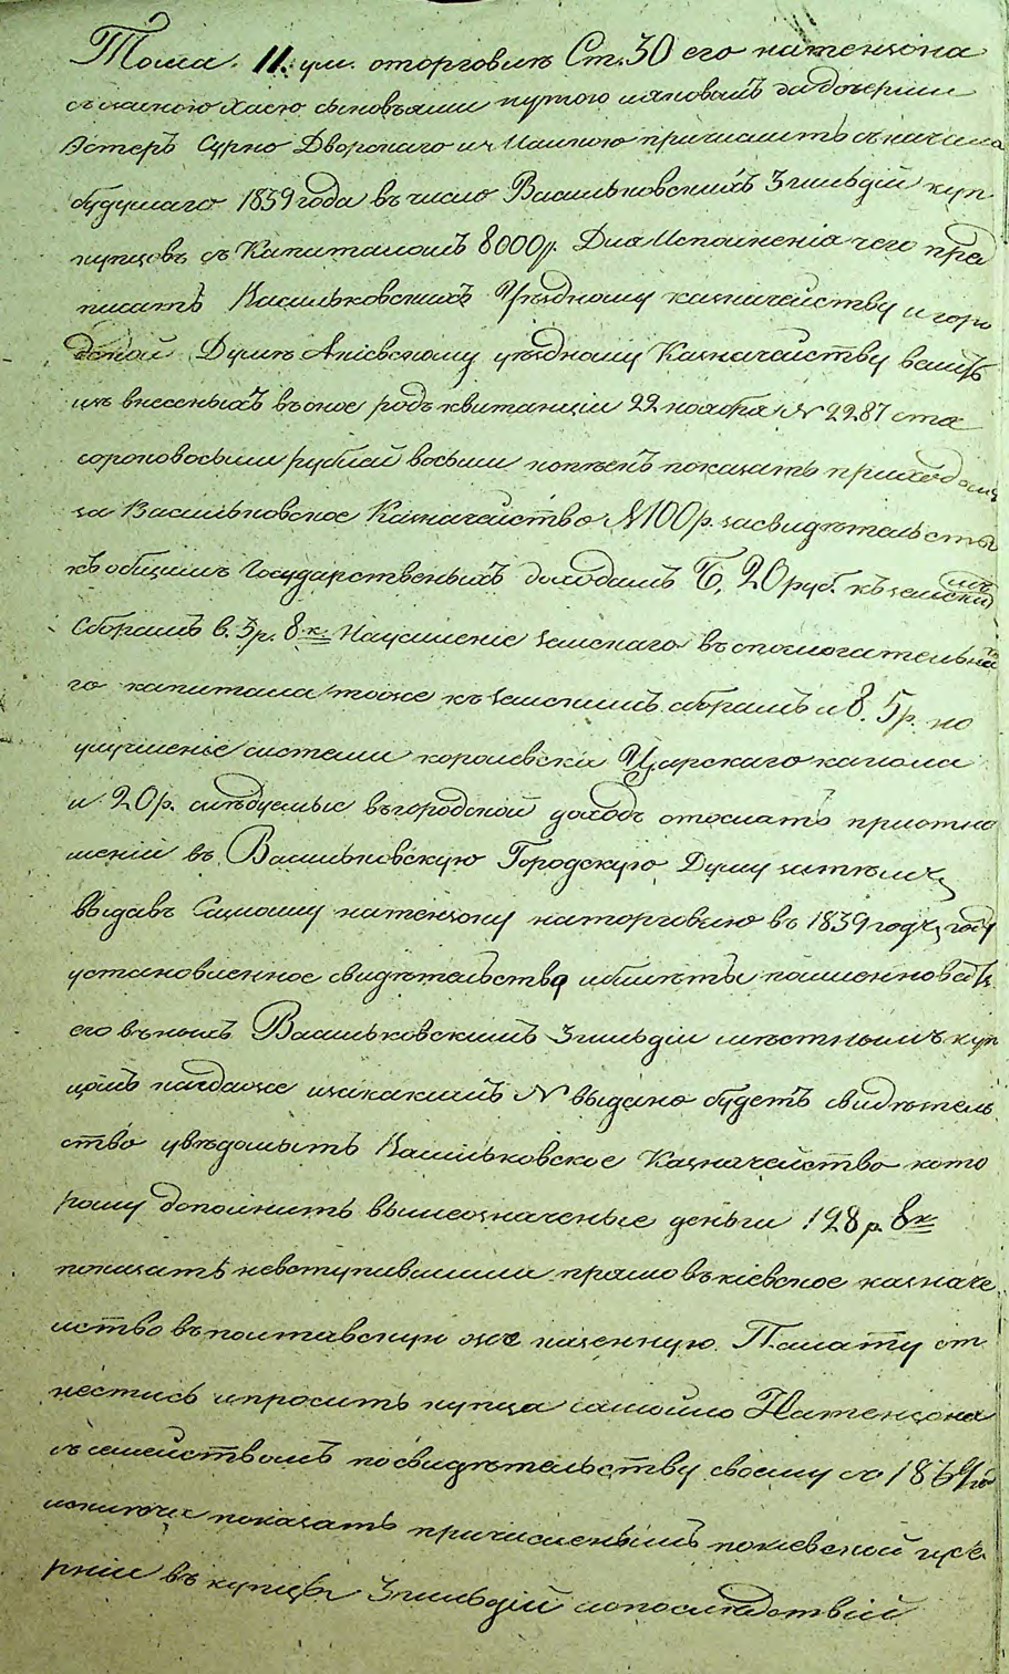 Тома. 11. ули. оторговлѣ Ст. 30 его натензона
съ женою Хаею сыновьями
Эстеръ Сурно Дворскаго и причислить съ начала
будущаго 1839 года въ число Васильковскихъ 3 гильдіи куп
купцовъ съ Капиталомъ 8000 р. Для Исполненія чего пред
писать Васильковскихъ Уѣздному казначейству и горо
дской Думѣ Акіевскому уѣздному Казначейству
изъ внесеныхъ въ оное подъ квитанціи 22 ноября № 2287 сто
сороковосьми рублей восьми копѣекъ показать приходомъ
за Васильковское Казначейство А 100 р. засвидѣтельство
къ общимъ Государственыхъ доходамъ Б. 20 руб. къ земскимъ
сборамъ в. 3 р. 8 к. На усиленіе земскаго въспомогательна
го капитала тоже къ земскимъ сборамъ и 8. 5 р. но
улучшенье системи королевски Царскаго канала
и 20 р. слѣдуемые въ городской доходъ отослать приотно
шеніи въ Васильковскую Городскую Думу затѣмъ
выдавъ Самому натензону наторговлю въ 1839 годъ году
установленное свидѣтельство ибилеты поименновать
его въ нихъ Васильковскимъ 3 гильдіи мѣстнымъ куп
цомъ когдаже изакакимъ № выдано будетъ свидѣтель
ство увѣдомыть Васильковское Казначейство кото
рому дополнить вышеозначеные деньги 128 р. 8 к.
показать невступившими прямо въ кіевское казначе
йство въ полтавскую же казенную Палату от
нестись ипросить купца самойло Натензона
съ семействомъ посвидѣтельству своему
показать причисленымъ покіевской губе
рніи въ купцы 3 гильдій ипослѣдствій